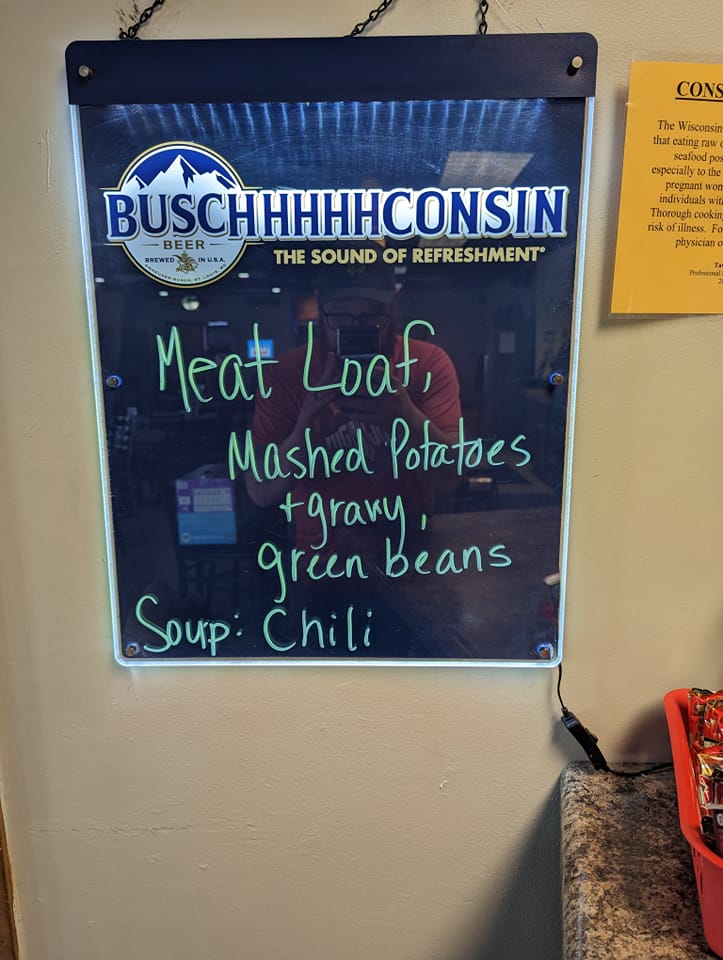 BUSCHHHHHCONSIN
BEER
BREWED IN U.S.A.
ANHEUSER-BUSCH, ST. LOUIS, MO
THE SOUND OF REFRESHMENT
Meat Loaf,
Mashed Potatoes
+ gravy,
green beans
Soup: Chili
CONS
The Wisconsin
that eating raw
seafood pos
especially to the
pregnant wom
individuals with
Thorough cooking
risk of illness. Fo
physician o
Professional